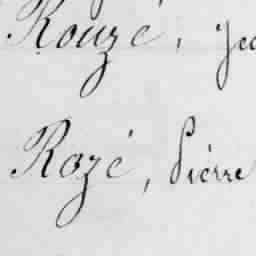 Rouzé, Jea
Rozé, Pierre